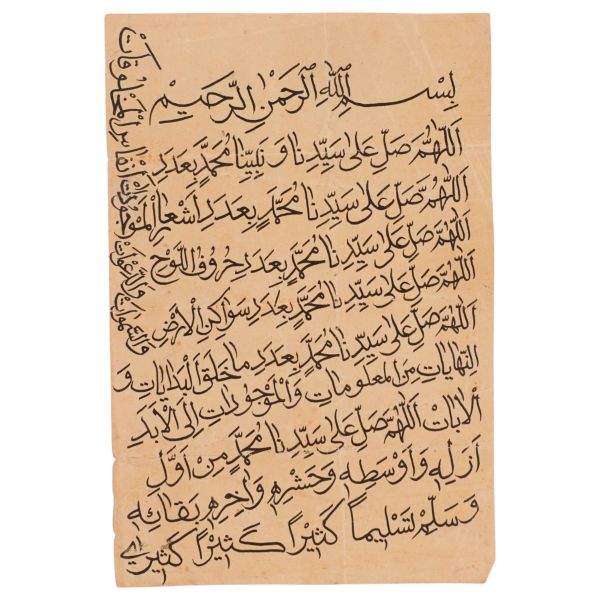 بِسْمِ اللهِ الرَّحْمٰنِ الرَّحِيْمِ
اَللّٰهُمَّ صَلِّ عَلٰى سَيِّدِنَا وَ نَبِيِّنَا مُحَمَّدٍ بِعَدَدِ
اَللّٰهُمَّ صَلِّ عَلٰى سَيِّدِنَا مُحَمَّدٍ بِعَدَدِ اَشْعَارِ الْمَوْجُودَاتِ
اَللّٰهُمَّ صَلِّ عَلٰى سَيِّدِنَا مُحَمَّدٍ بِعَدَدِ حُرُوْفِ اللَّوْحِ
اَللّٰهُمَّ صَلِّ عَلٰى سَيِّدِنَا مُحَمَّدٍ بِعَدَدِ سَوَاكِنِ الْاَرْضِ
اَللّٰهُمَّ صَلِّ عَلٰى سَيِّدِنَا مُحَمَّدٍ بِعَدَدِ مَا خَلَقَ الْبَدَايَاتِ وَ
النِّهَايَاتِ مِنَ الْمَعْلُومَاتِ وَالْمَوْجُوْدَاتِ اِلَى الْاَبَدِ
الْاٰبَاتِ اَللّٰهُمَّ صَلِّ عَلٰى سَيِّدِنَا مُحَمَّدٍ مِنْ اَوَّلِ
اَزَلِهٖ وَ اَوْسَطِهٖ وَ حَشْرِهٖ وَ اٰخِرِهٖ بَقَائِهٖ
وَ سَلِّمْ تَسْلِيْمًا كَثِيْرًا كَثِيْرًا كَثِيْرًا
اَنْفَاسِ الْمَخْلُوْقَاتِ